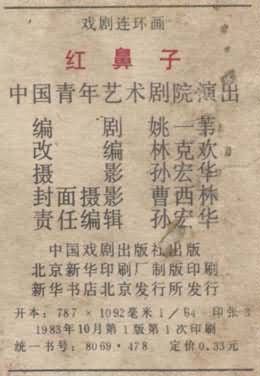 戏剧连环画
红鼻子
中国青年艺术剧院演出
编 剧 姚一苇
改 编 林克欢
摄 影 孙宏华
封面摄影 曹西林
责任编辑 孙宏华
中国戏剧出版社出版
北京新华印刷厂制版印刷
新华书店北京发行所发行
开本：787×1092毫米1/64 印张3
1983年10月第1版第1次印刷
统一书号：8069·478 定价0.33元